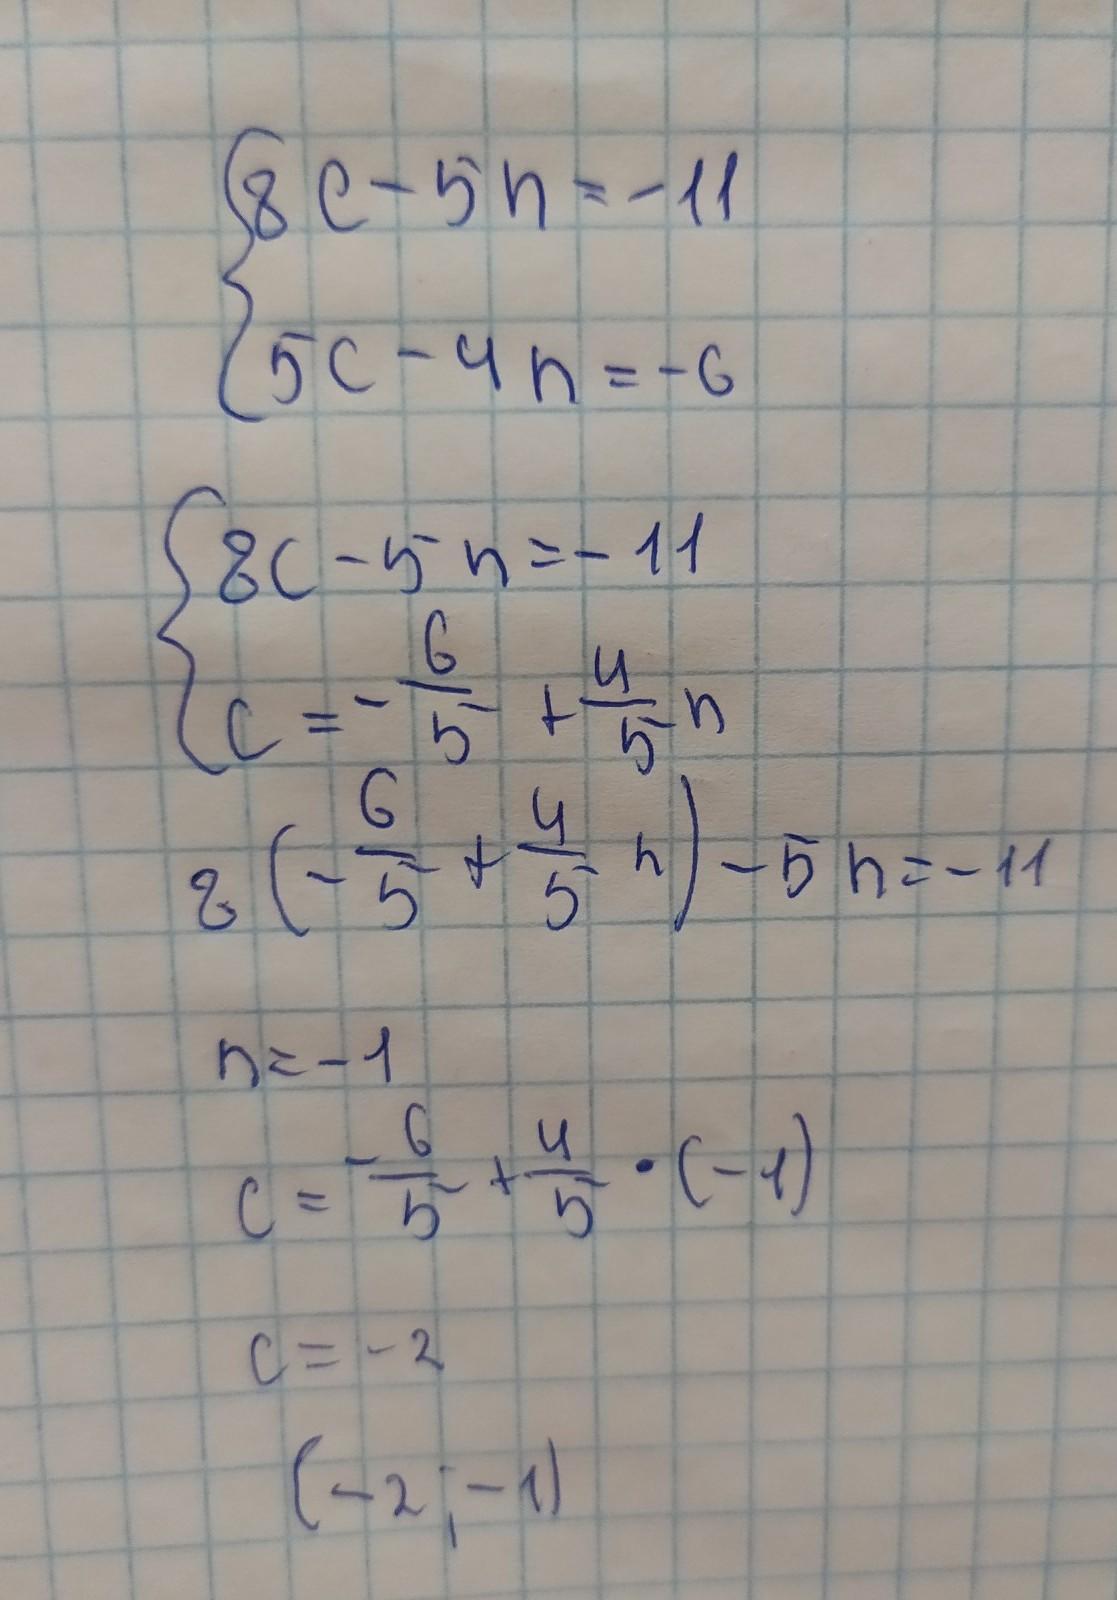 8c - 5n = -11
5c - 4n = -6
8c - 5n = -11
c = -6/5 + 4/5 n
8(-6/5 + 4/5 n) - 5n = -11
n = -1
c = -6/5 + 4/5 · (-1)
c = -2
(-2; -1)